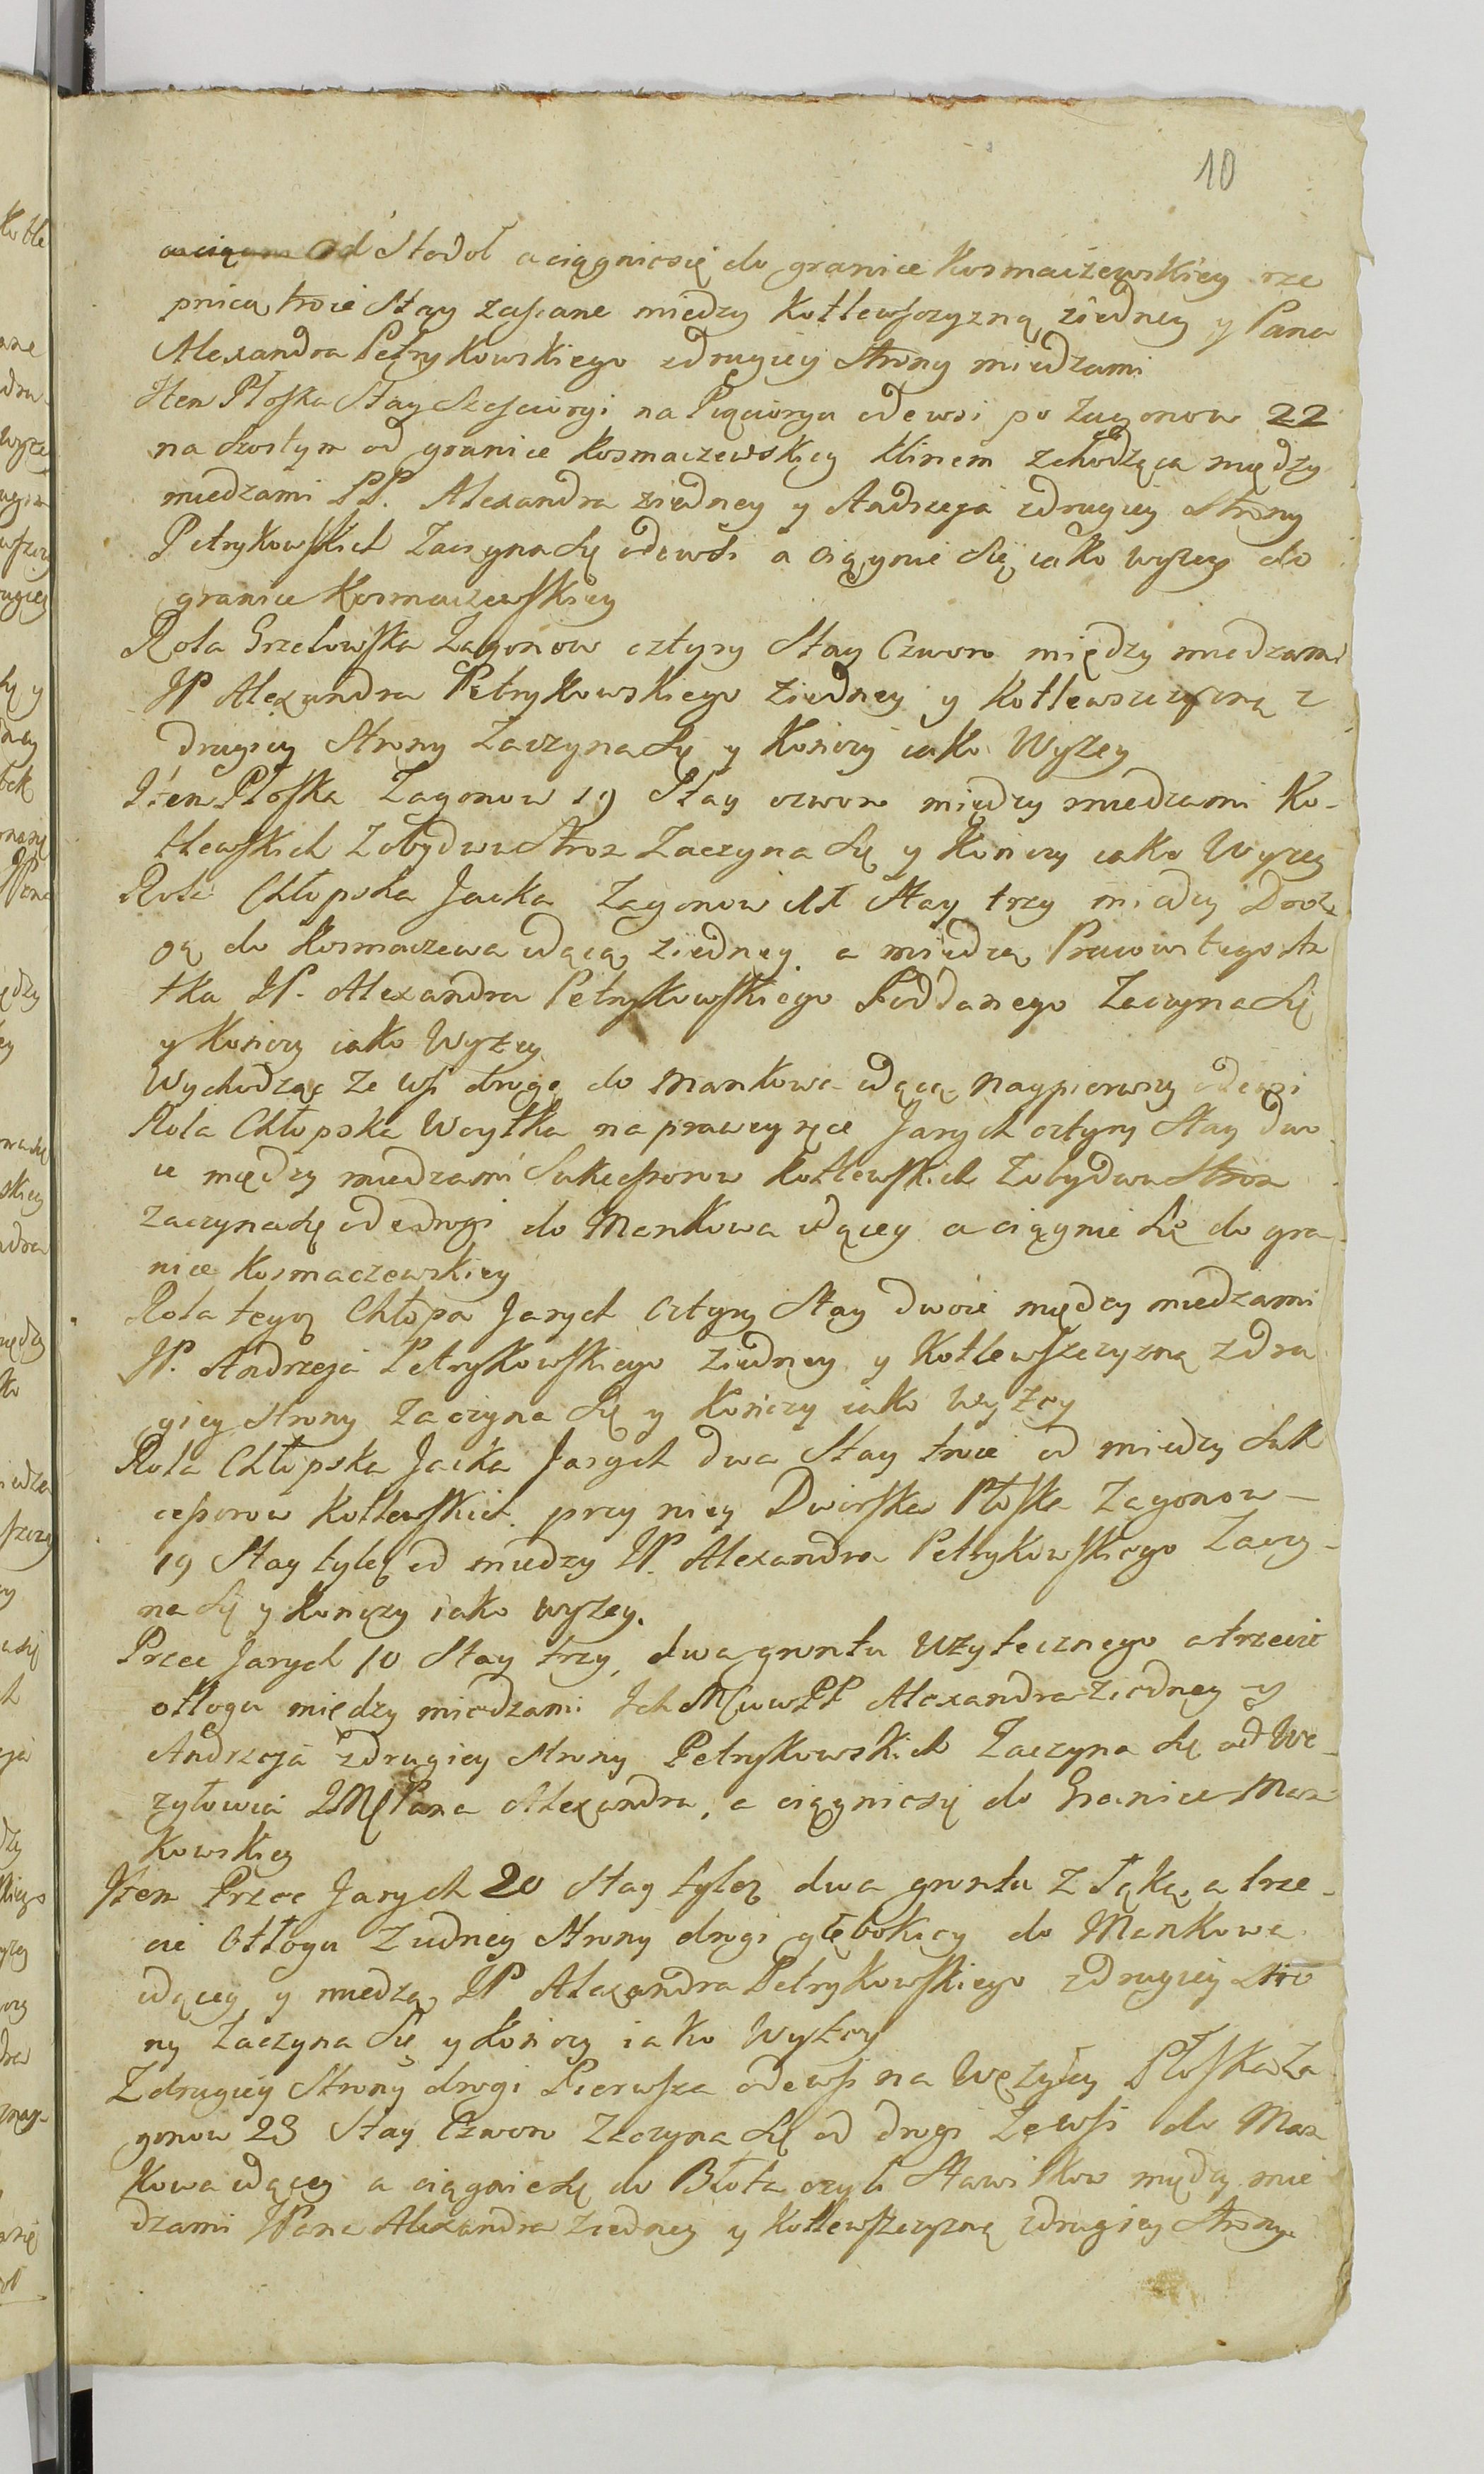 10
od Stodoł a ciągnicsię do granice Kosmaczewskiey rze
pnica troie Stay zasiane między Kotlewszczyzną ziedney y Pana
Alexandra Petrykowskiego zdrugiey Strony miedzami
Item Płoska Stay Szesciorgi na Pięciorgu odewsi po Zagonow 22
na Szostym od granice Kosmaczewskiey klinem zchodząca między
miedzami PP. Alexandra ziedney y Andrzeja zdrugiey Strony
Petrykowskich Zaczyna Się odewsi a ciągnie Się iako wyzey do
granice Kosmaczewskiey
Rola Grzelowska Zagonow cztyry Stay Czworo między miedzami
JP Alexandra Petrykowskiego ziedney y Kotlewszczyzną z
drugiey Strony Zaczyna Się y Kończy iako Wyzey
Item Płoska Zagonow 19 Stay czworo między miedzami Ko-
tlewskich Zobydwu Stron Zaczyna Się y Kończy iako Wyzey
Rola Chłopska Jacka Zagonow Stay trzy miedzy Drog
ą do Kosmaczewa idącą ziedney a miedzą Pracowitego
tka JP. Alexandra Petrykowskiego Poddanego Zaczyna Się
y Kończy iako Wyzey
Wychodząc ze wsi drogą do Mankowa idącą naypierwszy odewsi
Rola Chłopska Woytka na prawey ręce Jarych cztyry Stay dwo
ie między miedzami Sukcessorow Kotlewskich Zobydwu Stron
zaczynasię od drogi do Mankowa idącey a ciągnie Się do gra-
nice Kosmaczewskiey
Rola tegoz Chłopa Jarych Cztyry Stay dwoie między miedzami
JP. Andrzeja Petrykowskiego ziedney y Kotlewszczyzną zdru
giey Strony Zaczyna Się y Kończy iako Wyzey
Rola Chłopska Jacka Jarych dwa Stay troie od miedzy Suk
cessorow Kotlewskich przy niey Dworska Płoska Zagonow -
19 Stay tylez od miedzy JP. Alexandra Petrykowskiego Zaczy-
na Się y Kończy iako wyzey.
Przec Jarych 10 Stay trzy, dwa gruntu Uzytecznego a trzecie
otłogu między miedzami Ich PP Alexandra ziedney y
Andrzeja zdrugiey Strony Petrykowskich Zaczyna Się od We-
zyłowia Pana Alexandra, a ciągniesię do Granice Man
kowskiey
Item Przec Jarych 20 Stay tylez dwa gruntu z Łąką, a trze-
cie Otłogu Ziedney Strony drogi głębokiey do Mankowa
idącey y miedzą JP Alexandra Petrykowskiego zdrugiey Stro
ny Zaczyna Się y Kończy iako Wyzey
Zdrugiey Strony drogi Pierwsza odewsi na Węzyłey Płoska Za
gonow 23 Stay Czworo Zaczyna Się od drogi Zewsi do Man
kowa idącey a ciągnie Się do Błota czyli Stawiskow między mie
dzami JPana Alexandra Ziedney y Kotlewszczyzną zdrugiey Strony.